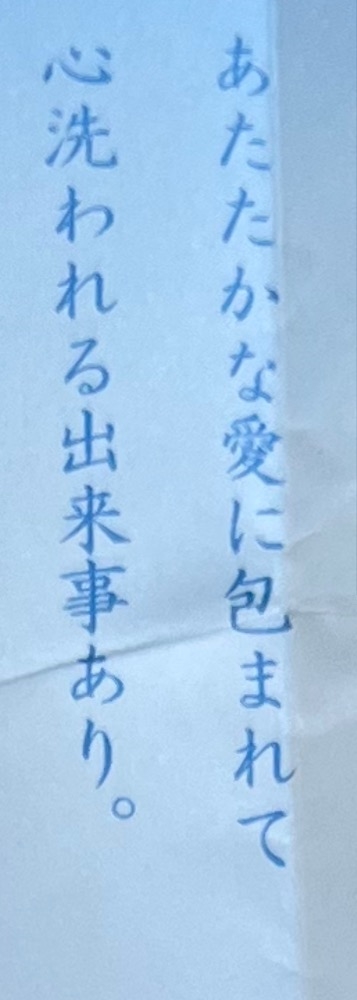 あたたかな愛に包まれて
心洗われる出来事あり。